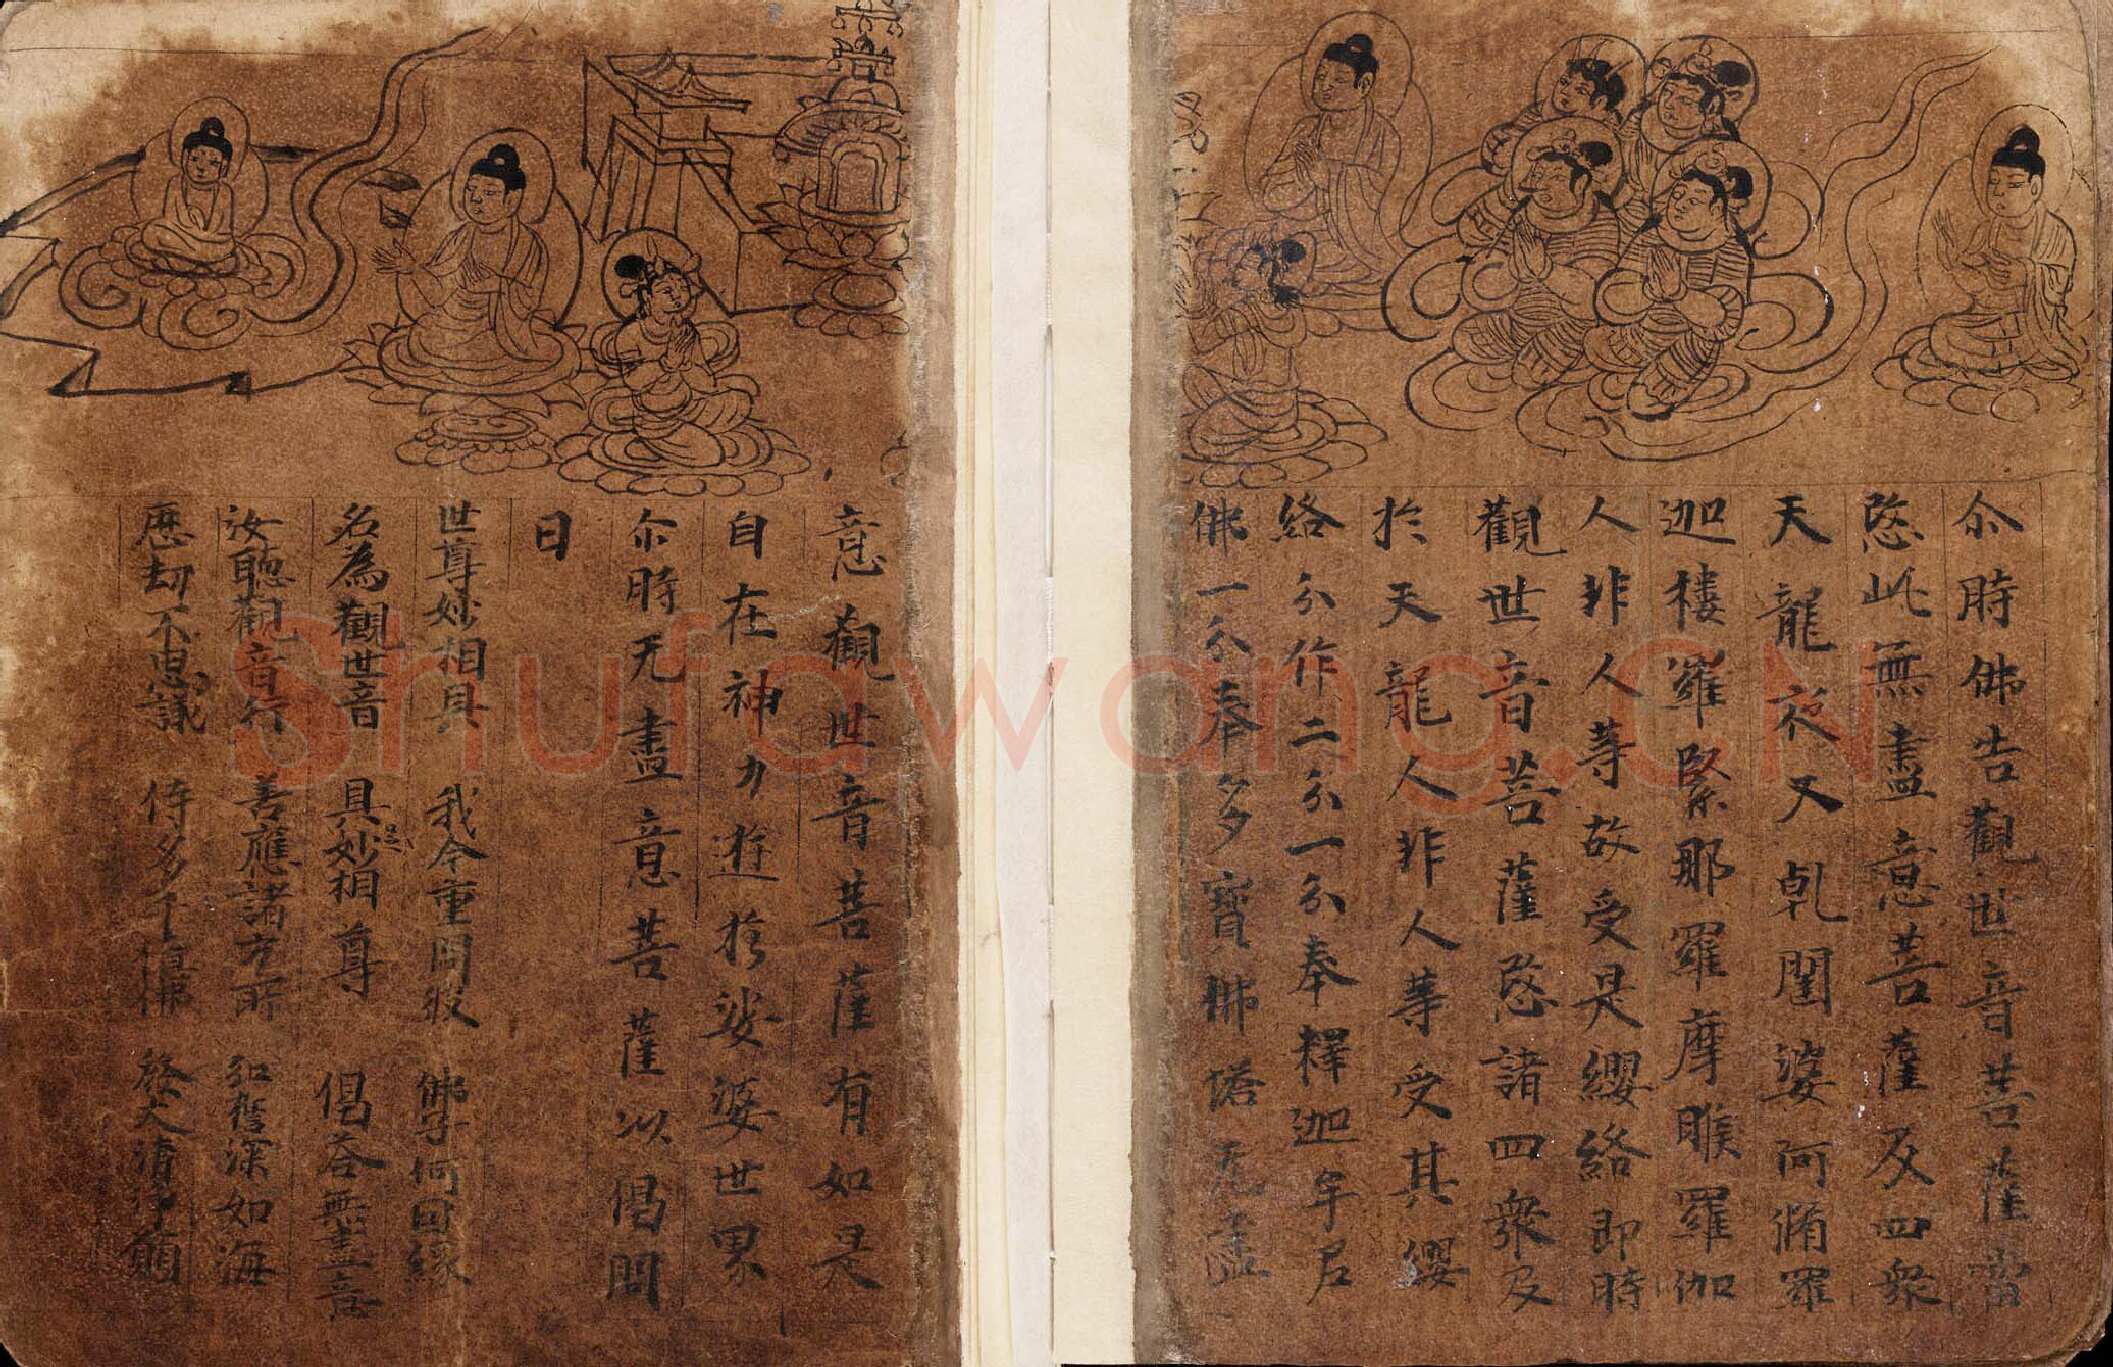 尒時佛告觀世音菩薩當
愍此無盡意菩薩及四衆
天龍夜叉乹闥婆阿脩羅
迦樓羅緊那羅摩睺羅伽
人非人等故受是纓絡即時
觀世音菩薩愍諸四衆及
扵天龍人非人等受其纓
絡分作二分一分奉釋迦牟尼
佛一分奉多寶佛塔无盡
意觀世音菩薩有如是
自在神力遊扵娑婆世界
尒時无盡意菩薩以偈問
曰
世尊妙相具 我今重問彼 佛子何因緣
名為觀世音 具足妙相尊 偈荅無盡意
汝聽觀音行 善應諸方所 弘誓深如海
歷劫不思議 侍多千億佛 發大清淨願
Shufawang.CN